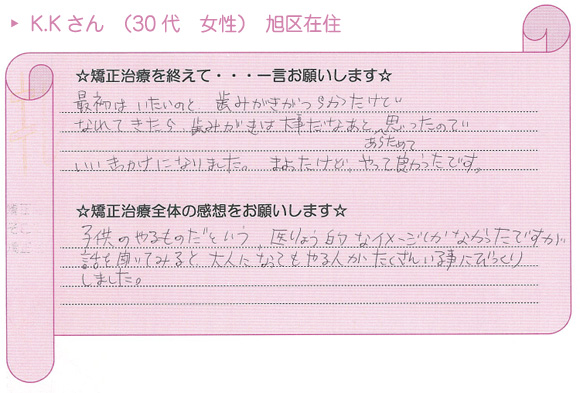 ▶ K.Kさん （30代　女性） 旭区在住
☆矯正治療を終えて・・・一言お願いします☆
最初は いたいのと 歯みがきがつらかったけど
なれてきたら 歯みがきは大事だなあと、思ったので
あらためて
いいきっかけになりました。 まよったけど、やって良かったです。
☆矯正治療全体の感想をお願いします☆
子供のやるものだという、医りょう的なイメージしかなかったですが
話を聞いてみると 大人になってもやる人が、たくさんいる事にびっくり
しました。